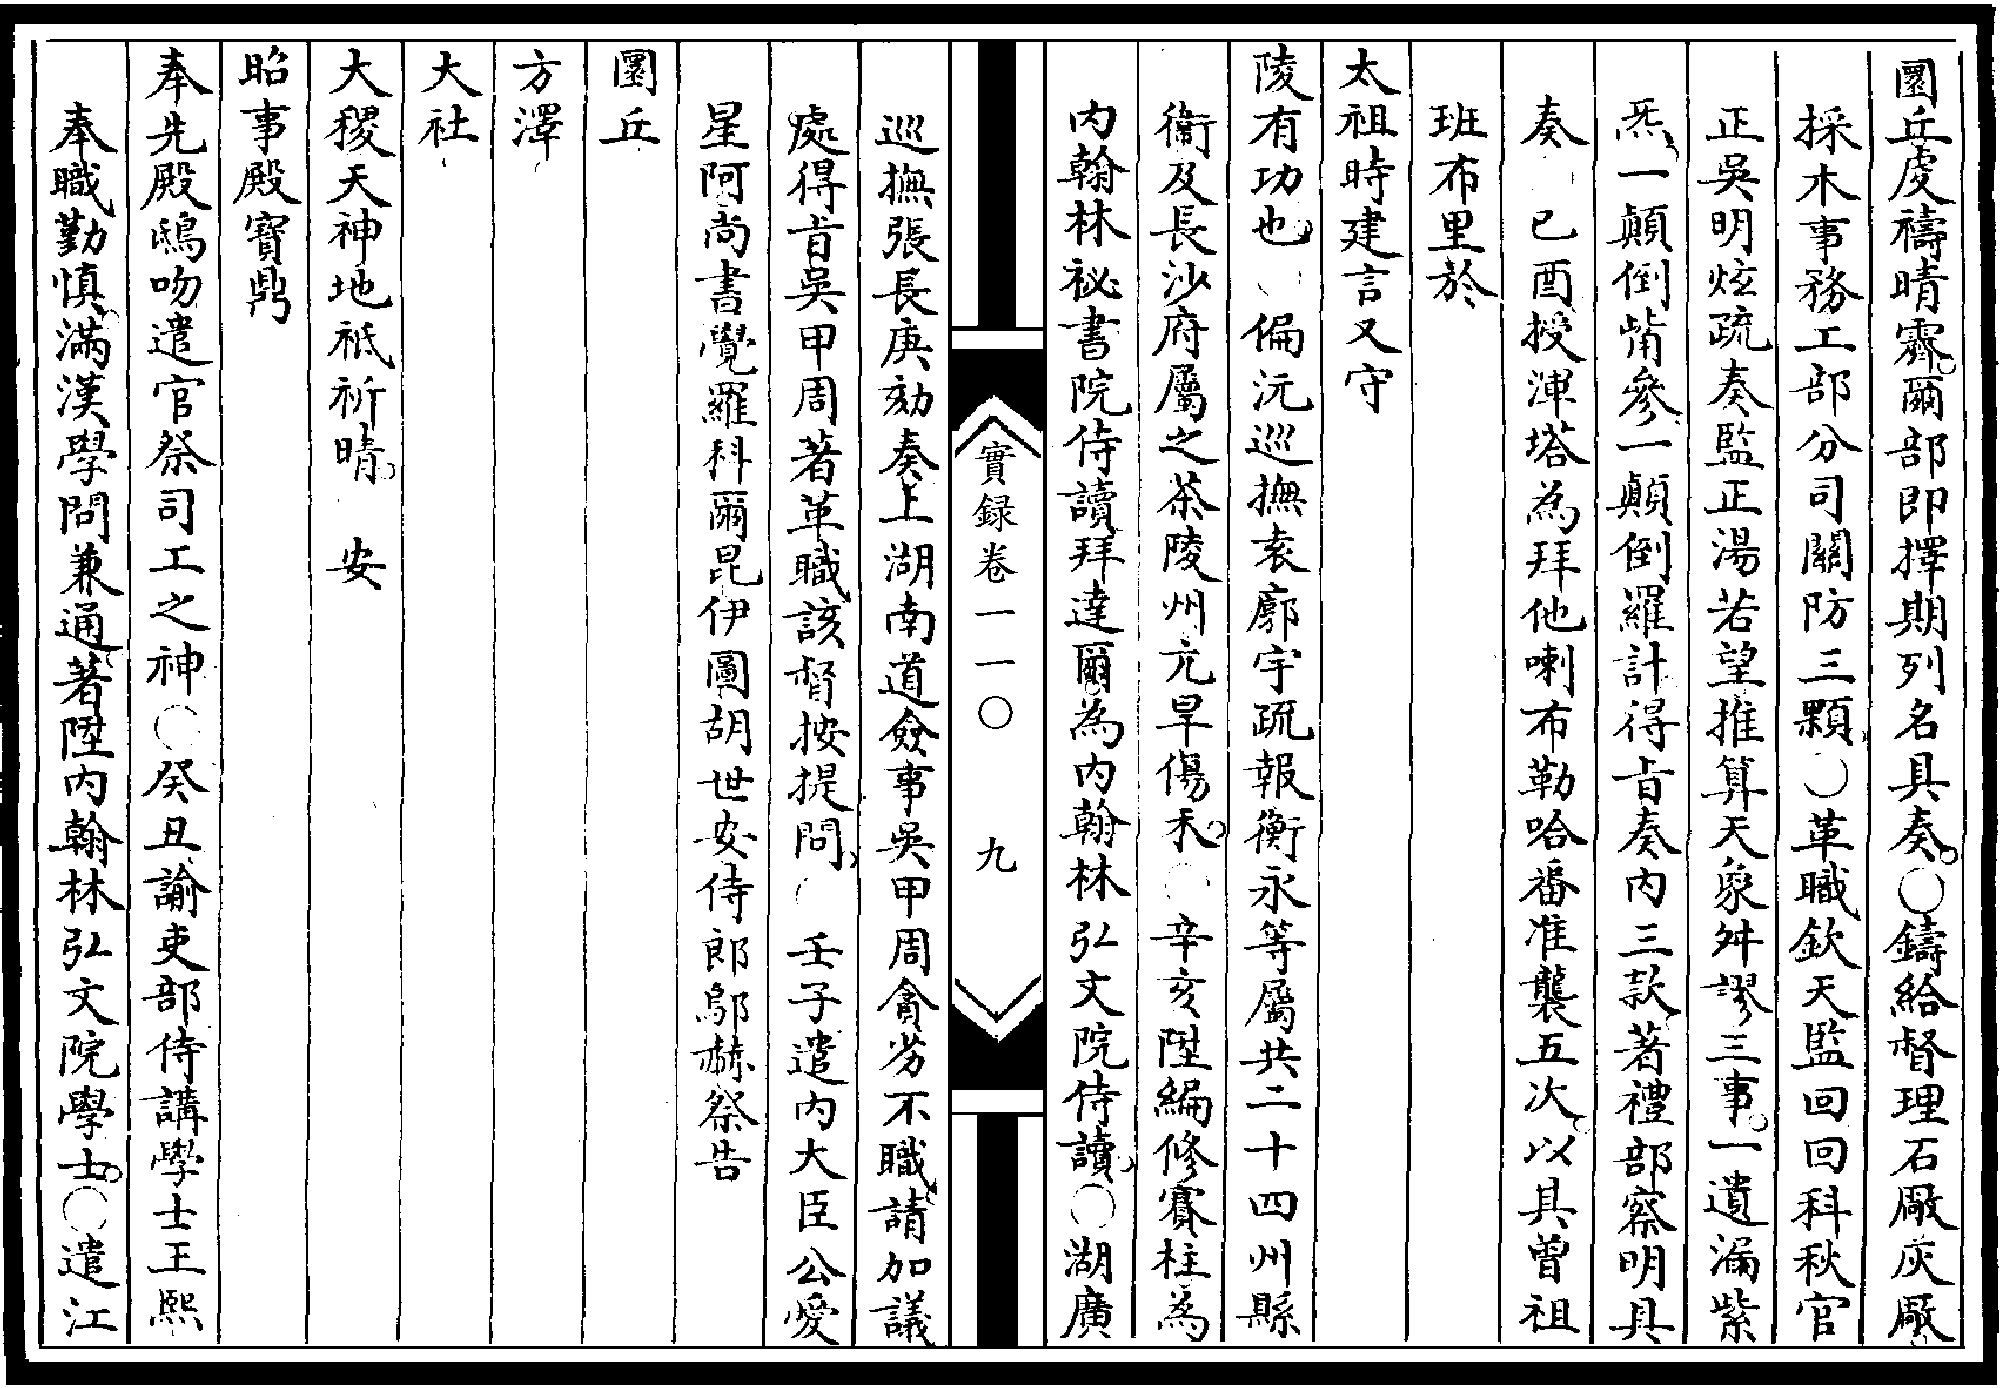 圜丘虔禱晴霽爾部即擇期列名具奏○鑄給督理石廠灰廠
採木事務工部分司關防三顆○革職欽天監回回科秋官
正吳明炫疏奏監正湯若望推算天象舛謬三事一遺漏紫
炁一顛倒觜參一顛倒羅計得旨奏內三款著禮部察明具
奏　己酉授渾塔為拜他喇布勒哈番准襲五次以其曾祖
班布里於
太祖時建言又守
陵有功也　偏沅巡撫袁廓宇疏報衡永等屬共二十四州縣
衛及長沙府屬之茶陵州亢旱傷禾○辛亥陞編修賽柱為
內翰林祕書院侍讀拜達爾為內翰林弘文院侍讀○湖廣
實録卷一一〇　九
巡撫張長庚劾奏上湖南道僉事吳甲周貪劣不職請加議
處得旨吳甲周著革職該督按提問　壬子遣內大臣公愛
星阿尚書覺羅科爾昆伊圖胡世安侍郎鄔赫祭告
圜丘
方澤
大社
大稷天神地祇祈晴　安
昭事殿寶鼎
奉先殿鴟吻遣官祭司工之神○癸丑諭吏部侍講學士王熙
奉職勤慎滿漢學問兼通著陞內翰林弘文院學士○遣江